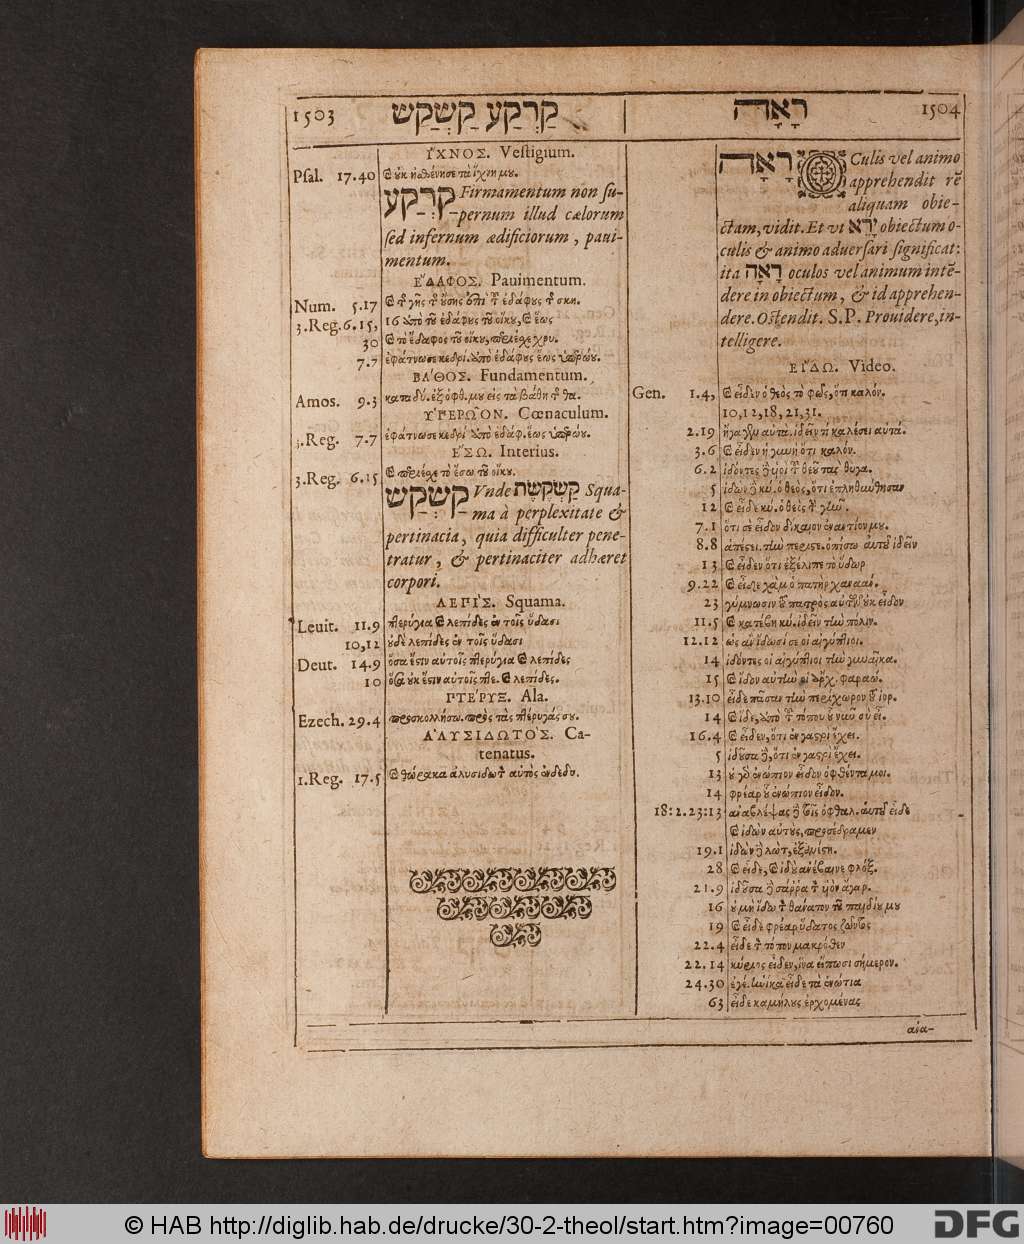 1503 קַרְקַע קַשְׂקַשׂ
ἼΧΝΟΣ. Vestigium.
Psal. 17.40 ϗ οὐκ ἠσθένησε τὰ ἴχνη μου.
קַרְקַע Firmamentum non su-
pernum illud cælorum
sed infernum ædificiorum, paui-
mentum.
ἜΔΑΦΟΣ. Pauimentum.
Num. 5.17 ϗ τ͂ γῆς τ͂ οὔσης ἐπὶ τ͂ ἐδάφους τ͂ σκη.
3.Reg. 6.15, 16 ὑπὸ τοῦ ἐδάφους τοῦ οἴκου, ϗ ἕως
30 ϗ τὸ ἔδαφος τοῦ οἴκου, περιέχε χρυ.
7.7 ἐφάτνωσε κεδρί. ὑπὸ ἐδάφους ἕως ὑπερώου.
ΒΆΘΟΣ. Fundamentum.
Amos. 9.3 καταδύ. ἐξ ὀφθ. μου εἰς τὰ βάθη τ͂ θα.
ὙΠΕΡΩ͂ΟΝ. Cœnaculum.
3.Reg. 7.7 ἐφάτνωσε κεδρί ὑπὸ ἐδάφ. ἕως ὑπερώου.
ἘΣΩ. Interius.
3.Reg. 6.15 ϗ περιέχε τὸ ἔσω τοῦ οἴκου.
קַשְׂקַשׂ Vnde קַשְׂקֶשֶׂת Squa-
ma à perplexitate &
pertinacia, quia difficulter pene-
tratur, & pertinaciter adhæret
corpori.
ΛΕΠΊΣ. Squama.
Leuit. 11.9 πτερύγια ϗ λεπίδες ἐν τοῖς ὕδασι
10,12 οὐδὲ λεπίδες ἐν τοῖς ὕδασι
Deut. 14.9 ὅσα ἔστιν αὐτοῖς πτερύγια ϗ λεπίδες
10 ὅσα οὐκ ἔστιν αὐτοῖς πτε. ϗ λεπίδες.
ΠΤΈΡΥΞ. Ala.
Ezech. 29.4 προσκολλήσω. πρὸς τὰς πτέρυγάς σου.
ἈΛΥΣΙΔΩΤΌΣ. Ca-
tenatus.
1.Reg. 17.5 ϗ θώρακα ἁλυσιδωτ͂ αὐτὸς ἐνδεδυ.
רָאָה 1504
רָאָה OCulis vel animo
apprehendit rē
aliquam obie-
ctam, vidit. Et vt יָרֵא obiectum o-
culis & animo aduersari significat:
ita רָאָה oculos vel animum intē-
dere in obiectum, & id apprehen-
dere. Ostendit. S.P. Prouidere, in-
telligere.
ΕἼΔΩ. Video.
Gen. 1.4, ϗ εἶδεν ὁ θεὸς τὸ φῶς, ὅτι καλόν.
10,12,18,21,31.
2.19 ἤγαγεν αὐτὰ. ἰδεῖν τί καλέσει αὐτά.
3.6 ϗ εἶδεν ἡ γυνὴ ὅτι καλόν.
6.2 ἰδόντες δὲ υἱοὶ τ͂ θεοῦ τὰς θυγα.
5 ἰδὼν δὲ κύ. ὁ θεὸς, ὅτι ἐπληθύνθησαν
12 ϗ εἶδε κύ. ὁ θεὸς τ͂ γῆν.
7.1 ὅτι σὲ εἶδον δίκαιον ἐναντίον μου.
8.8 ἀπέστι. τὴν περιστε. ὀπίσω αὐτοῦ ἰδεῖν
13 ϗ εἶδεν ὅτι ἐξέλιπε τὸ ὕδωρ
9.22 ϗ εἶδε χὰμ ὁ πατὴρ χαναάν.
23 γύμνωσιν τοῦ πατρὸς αὐτῶν οὐκ εἶδον
11.5 ϗ κατέβη κύ. ἰδεῖν τὴν πόλιν.
12.12 ὡς ἂν ἴδωσί σε οἱ αἰγύπτιοι.
14 ἰδόντες οἱ αἰγύπτιοι τὴν γυναῖκα.
15 ϗ ἶδον αὐτὴν οἱ ἄρχ. φαραώ.
13.10 εἶδε πᾶσαν τὴν περίχωρον τοῦ ἰορ.
14 ϗ ἴδε, ἀπὸ τ͂ τόπου οὗ νῦν σὺ εἶ.
16.4 ϗ εἶδεν, ὅτι ἐν γαστρὶ ἔχει.
5 ἰδοῦσα δὲ, ὅτι ἐν γαστρὶ ἔχει.
13 ϗ γὸ ἐνώπιον εἶδον ὀφθέντα μοι.
14 φρέαρ οὗ ἐνώπιον εἶδον.
18:2.23:13 ἀναβλέψας δὲ τοῖς ὀφθαλ. αὐτοῦ εἶδε
ϗ ἰδὼν αὐτοὺς, προσέδραμεν
19.1 ἰδὼν δὲ λώτ, ἐξανέστη.
28 ϗ εἶδε, ϗ ἰδοὺ ἀνέβαινε φλόξ.
21.9 ἰδοῦσα δὲ σάρρα τ͂ υἱὸν ἄγαρ.
16 οὐ μὴ ἴδω τ͂ θάνατον τοῦ παιδίου μου
19 ϗ εἶδε φρέαρ ὕδατος ζῶντος
22.4 εἶδε τ͂ τόπον μακρόθεν
22.14 κύριος εἶδεν, ἵνα εἴπωσι σήμερον.
24.30 ἐγέ. ἡνίκα εἶδε τὰ ἐνώτια
63 εἶδε καμήλους ἐρχομένας
ἀνα-
© HAB http://diglib.hab.de/drucke/30-2-theol/start.htm?image=00760
DFG